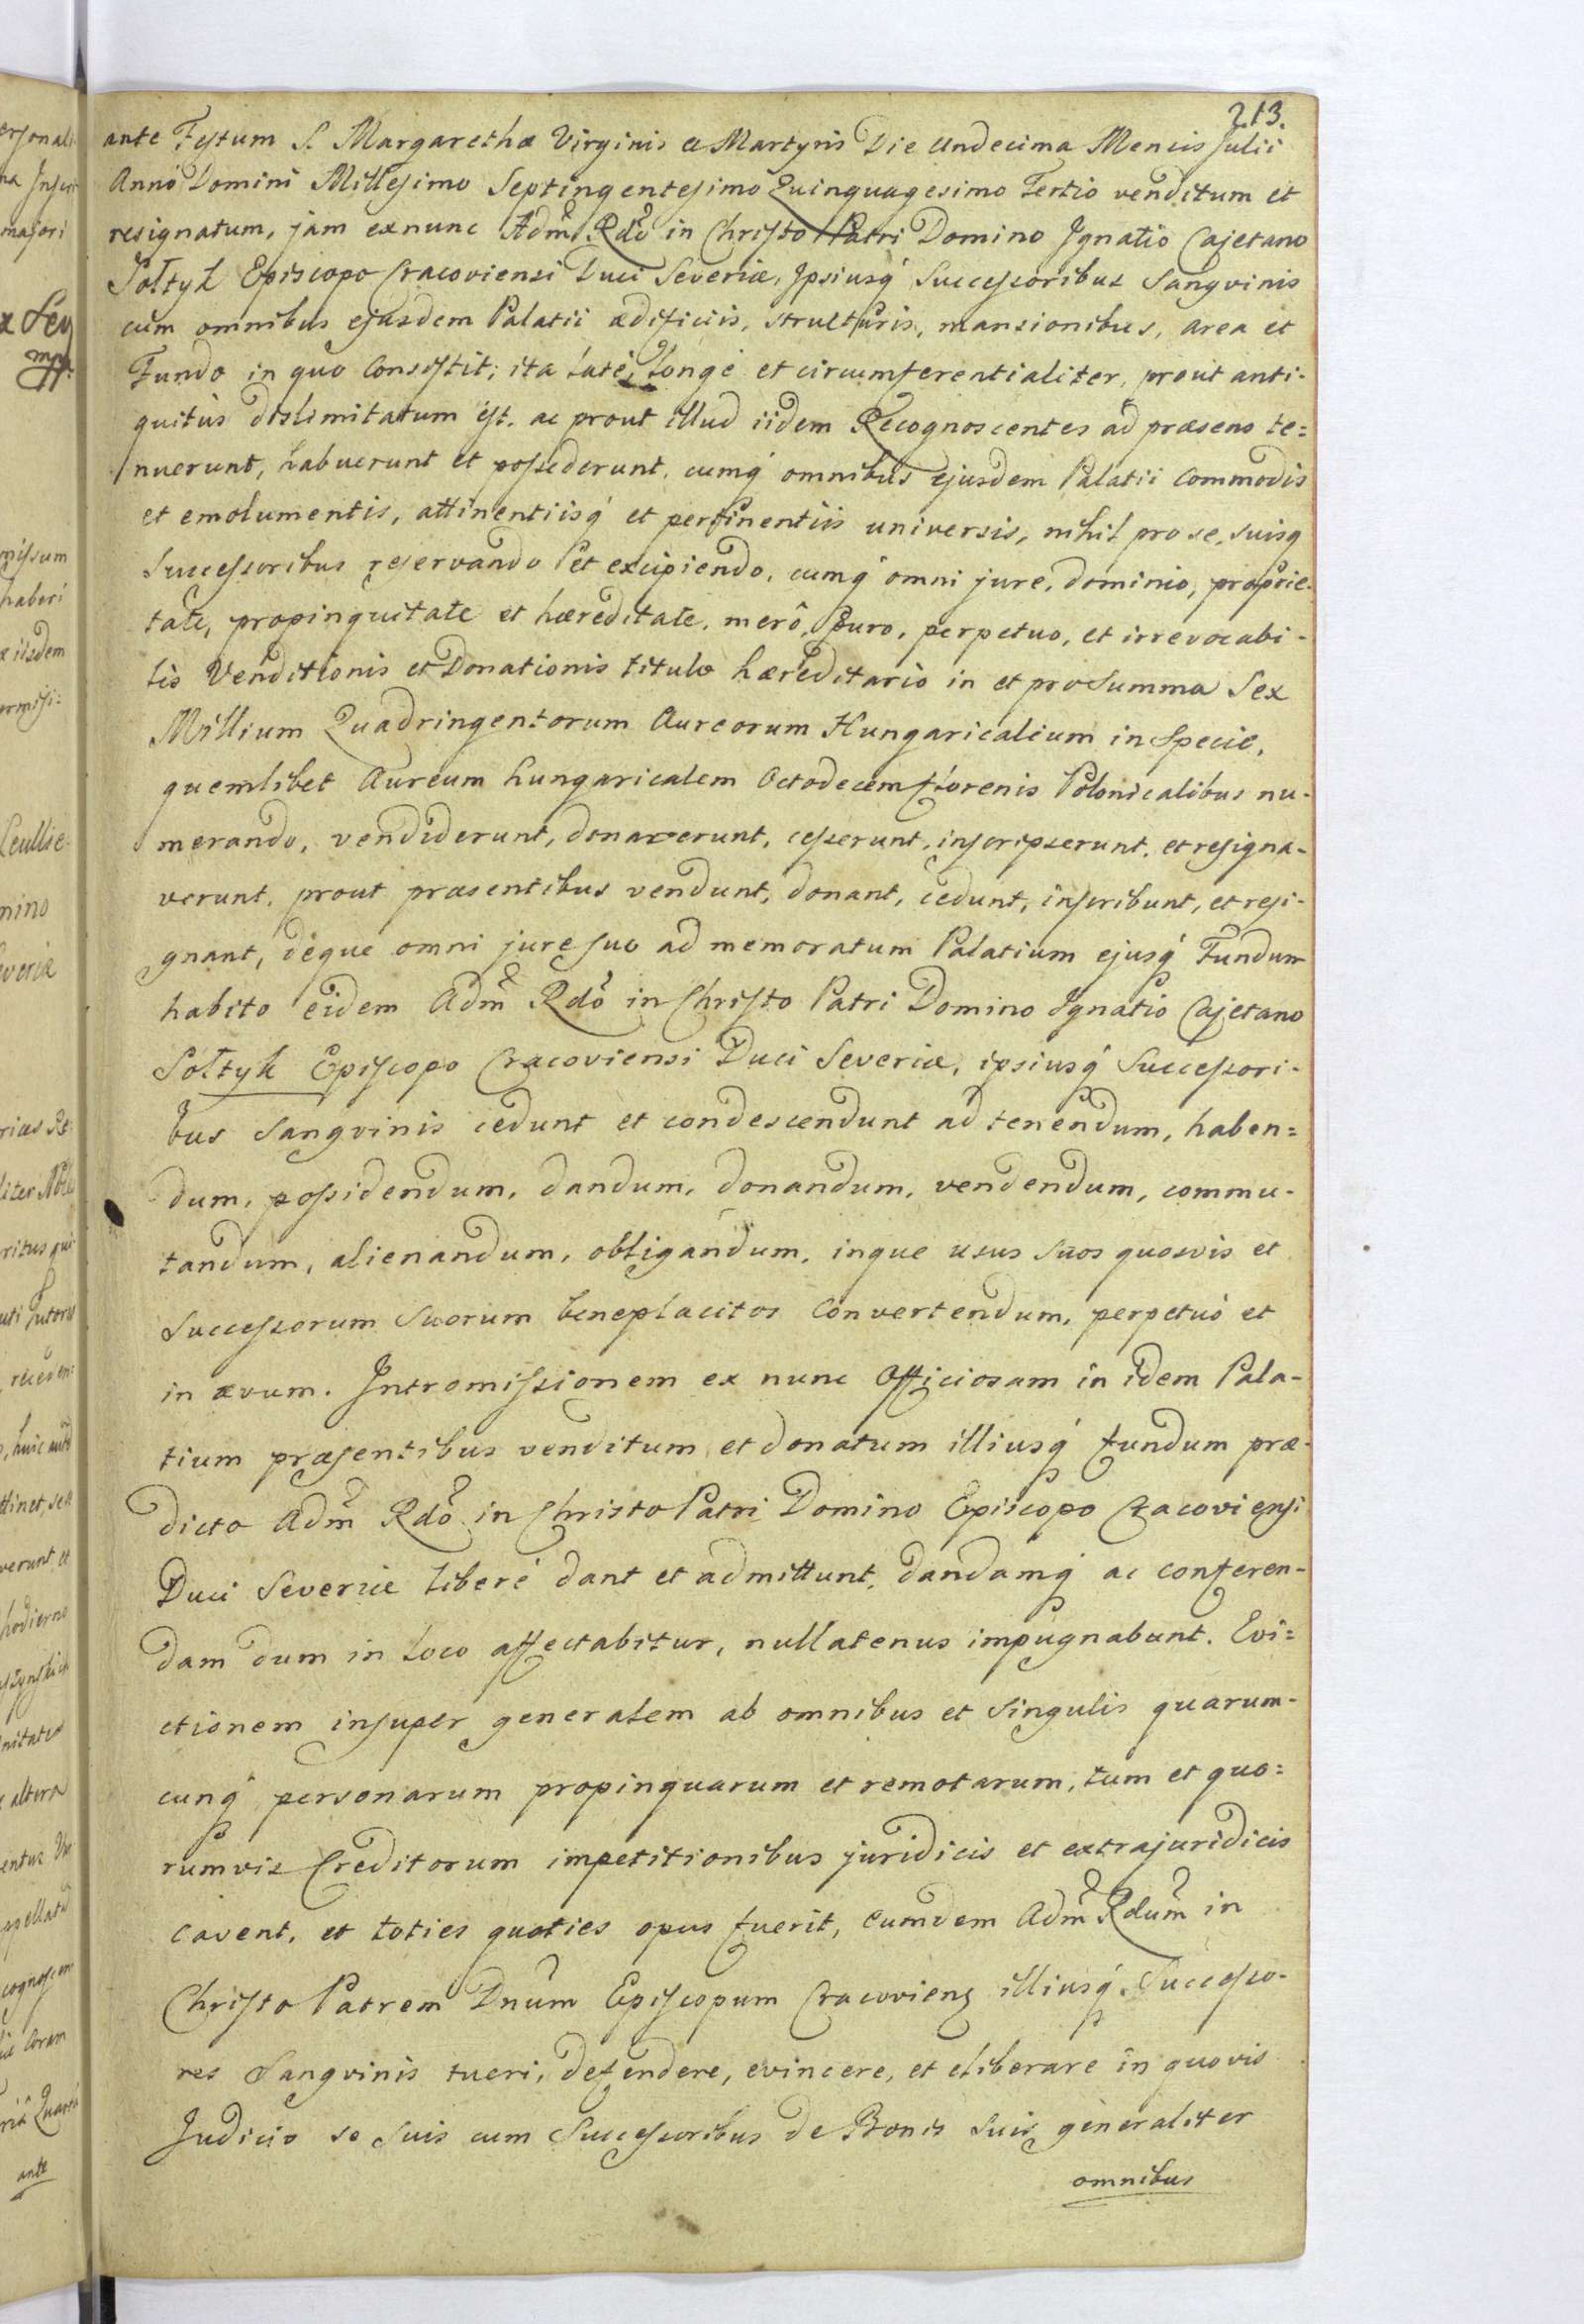 213.
ante Festum S. Margarethæ Virginis et Martyris Die Undecima Mensis Julii
Annô Domini Millesimo Septingentesimô Quinquagesimo Tertio venditum et
resignatum, jam ex nunc Adm̃ Rdõ in Christo Patri Domino Ignatio Cajetano
Sołtyk Episcopo Cracoviensi Duci Severiæ, Ipsiusq́ Successoribus Sangvinis
cum omnibus ejusdem Palatii ædificiis, structuris, mansionibus, area et
Fundo in quo Consistit; ita latè, Longè et circumferentialiter, prout anti-
quitùs dislimitatum est. ac prout illud iidem Recognoscentes ad præsens te=
nuerunt, habuerunt et possederunt. cumq́ omnibus ejusdem Palatii Commodis
et emolumentis, attinentiisq́ et pertinentiis universis, nihil pro se, suisq
Successoribus reservando et excipiendo, cumq́ omni jure, dominio, proprie-
tate, propinquitate et hæreditate, merô, puro, perpetuo, et irrevocabi-
lis Venditionis et Donationis titulo hæreditario in et pro Summa Sex
Millium Quadringentorum Aureorum Hungaricalium in Specie,
quemlibet Aureum hungaricalem Octodecem florenis Polonicalibus nu-
merando, vendiderunt, donaverunt, cesserunt, inscripserunt, et resigna-
verunt, prout præsentibus vendunt, donant, cedunt, inscribunt, et resi-
gnant, dèque omni jure suo ad memoratum Palatium ejusq́ Fundum
habito eidem Adm̃ Rdõ in Christo Patri Domino Ignatio Cajetano
Sołtyk Episcopo Cracoviensi Duci Severiæ, ipsiusq́ Successori-
bus Sangvinis cedunt et condescendunt ad tenendum, haben=
dum, possidendum, dandum, donandum, vendendum, commu-
tandum, alienandum, obligandum, inque usus suos quosvis et
Successorum Suorum beneplacitos Convertendum, perpetuò et
in ævum. Intromissionem ex nunc Officiosam in idem Pala-
tium præsentibus venditum et donatum illiusq́ fundum præ-
dicto Adm̃ Rdõ in Christo Patri Domino Episcopo Cracoviensi
Duci Severiæ liberè dant et admittunt, dandamq́ ac conferen-
dam dum in Loco affectabitur, nullatenus impugnabunt. Evi=
ctionem insuper generalem ab omnibus et Singulis quarum-
cunq́ personarum propinquarum et remotarum, tum et quo=
rumvis Creditorum impetitionibus juridicis et extrajuridicis
cavent, et toties quoties opus fuerit, Eumdem Adm̃ Rdum̃ in
Christo Patrem Dnum̃ Episcopum Cracovienß illiusq́ Successo-
res Sangvinis tueri, defendere, evincere, et eliberare in quovis
Judicio se suis cum Successoribus de Bonis suis generaliter
omnibus